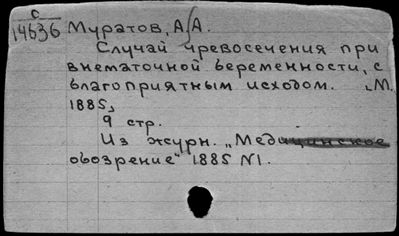 С
14636 Муратов, А А.
Случай чревосечения при
внематочной беременности, с
благоприятным исходом. „М.
1885,
9 стр.
Из журн. „Медицинское
обозрение" 1885 №1.